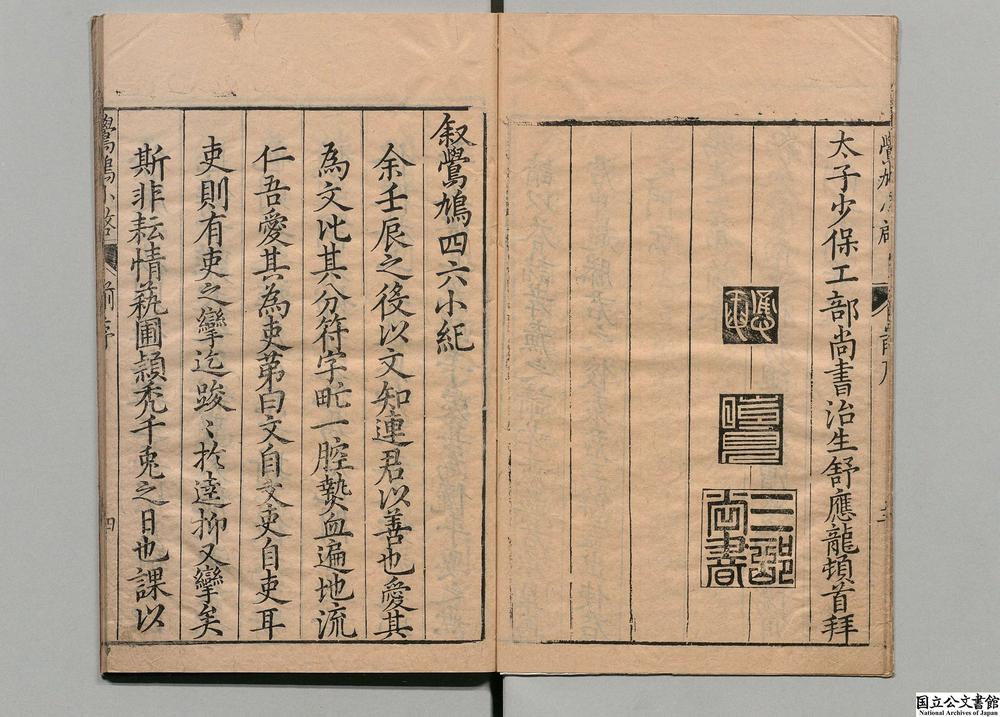 太子少保工部尚書治生舒應龍頓首拜
三部尚書
叙鷽鳩四六小紀
余壬辰之役以文知連君以善也愛其
為文比其分符字甿一腔𤍠血遍地流
仁吾愛其為吏第曰文自文吏自吏耳
吏則有吏之攣迄踆〻於逵抑又攣矣
斯非耘情蓺圃頴禿千兎之日也課以
四
国立公文書館
National Archives of Japan